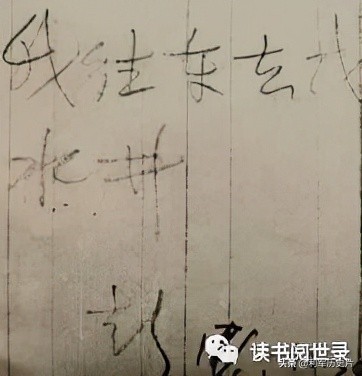 我往东去
水井
彭
读书阅世录
头条@利军历史片